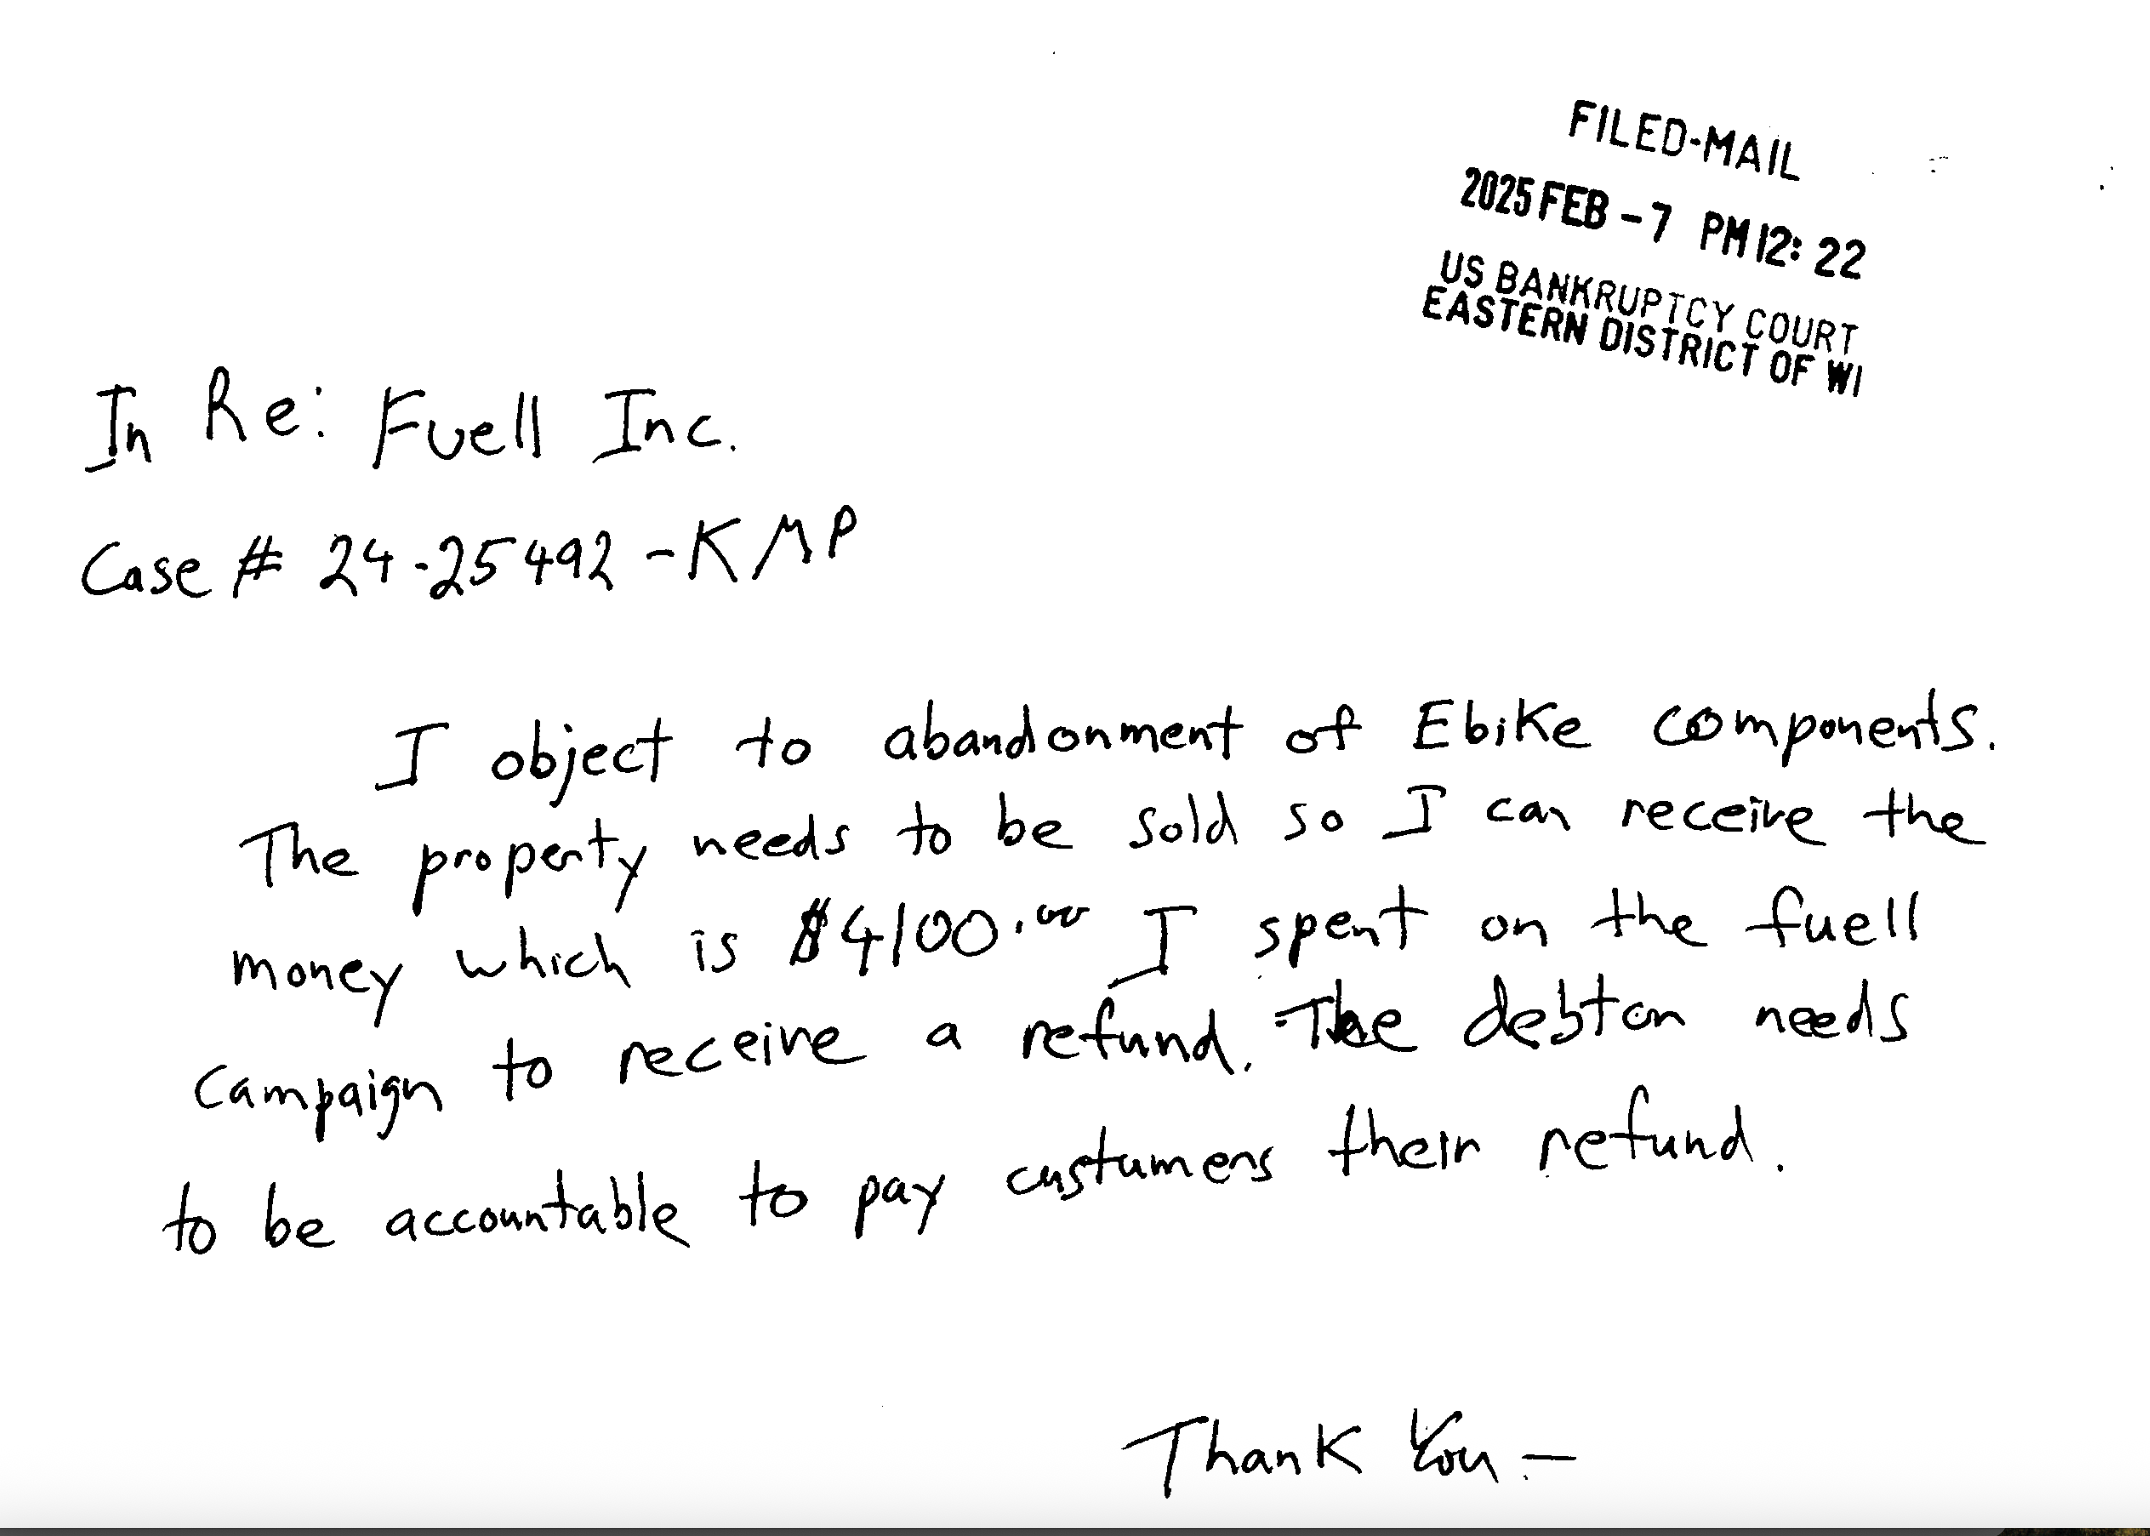 FILED-MAIL
2025 FEB -7 PM 12:22
US BANKRUPTCY COURT
EASTERN DISTRICT OF WI
In Re: Fuell Inc.
Case # 24-25492-KMP
I object to abandonment of Ebike components.
The property needs to be sold so I can receive the
money which is $4100.00 I spent on the fuell
campaign to receive a refund. The debtor needs
to be accountable to pay custumers their refund.
Thank You —